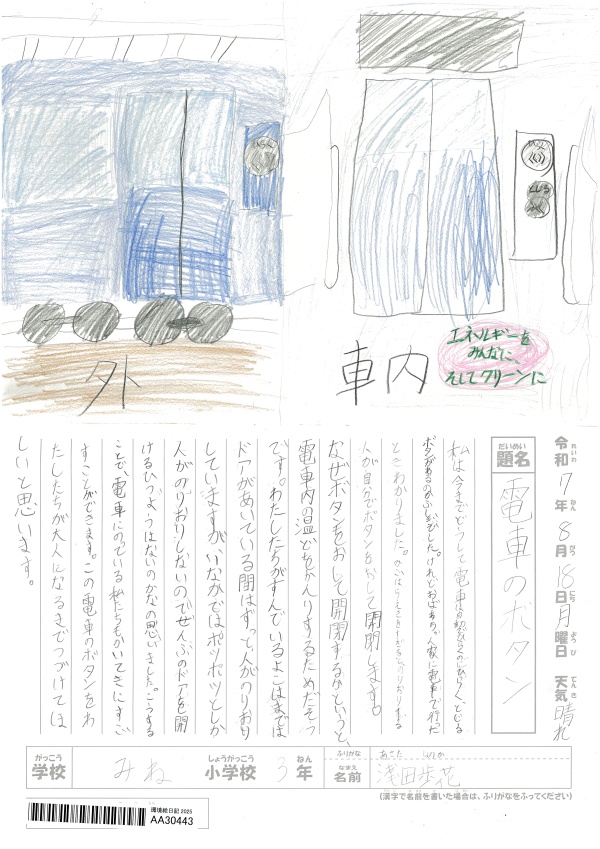 ひらく
とじる
外
車内
エネルギーを
みんなに、
そしてクリーンに
令和7年8月18日月曜日 天気 晴れ
れいわ ねん がつ にち ようび てんき
だいめい
題名
電車のボタン
私は今までどうして電車は
ボタンがあるのかふしぎでした。けれど、おばあちゃん家に電車で行った
ときわかりました。
人が自分でボタンをおして開閉します。
なぜボタンをおして開閉するかというと、
電車内の温どをかんりするためだそう
です。わたしたちがすんでいるよこはまでは
ドアがあいている間はずっと、人がのりおり
していますが、いなかではポツポツとしか
人がのりおりしないのでぜんぶのドアを開
けるひつようはないのかなの思いました。こうする
ことで、電車にのっている私たちもかいてきにすご
すことができます。この電車のボタンをわ
たしたちが大人になるまでつづけてほ
しいと思います。
がっこう
学校
みね
しょうがっこう
小学校
3
ねん
年
ふりがな
なまえ
名前
浅田歩花
(漢字で名前を書いた場合は、ふりがなをふってください)
環境絵日記 2025
AA30443